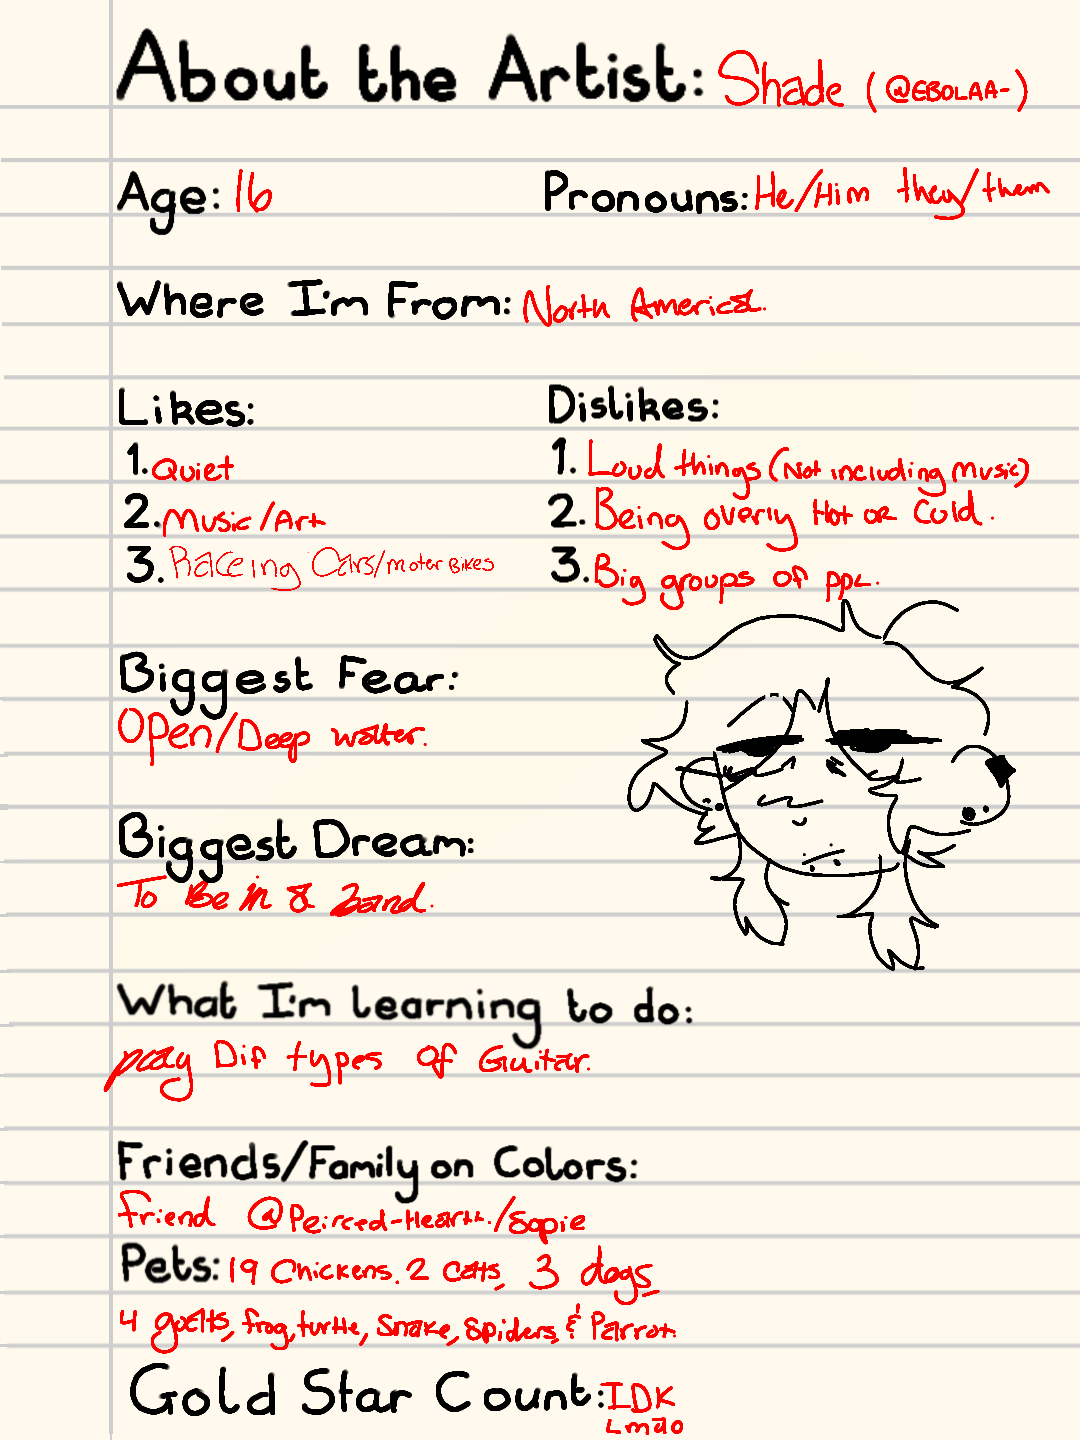 About the Artist: Shade (@EBOLAA-)
Age: 16 Pronouns: He/Him they/them
Where I'm From: North America.
Likes: Dislikes:
1. Quiet 1. Loud things (Not including music)
2. Music/Art 2. Being overly Hot or Cold.
3. Raceing Cars/moter Bikes 3. Big groups of ppl.
Biggest Fear:
Open/Deep water.
Biggest Dream:
To Be in a Band.
What I'm learning to do:
play Dif types of Guitar.
Friends/Family on Colors:
friend @Peirced-Heart./Sapie
Pets: 19 Chickens. 2 Cats, 3 dogs,
4 goats, frog, turtle, snake, spiders, & Parrot
Gold Star Count: IDK
Lmao